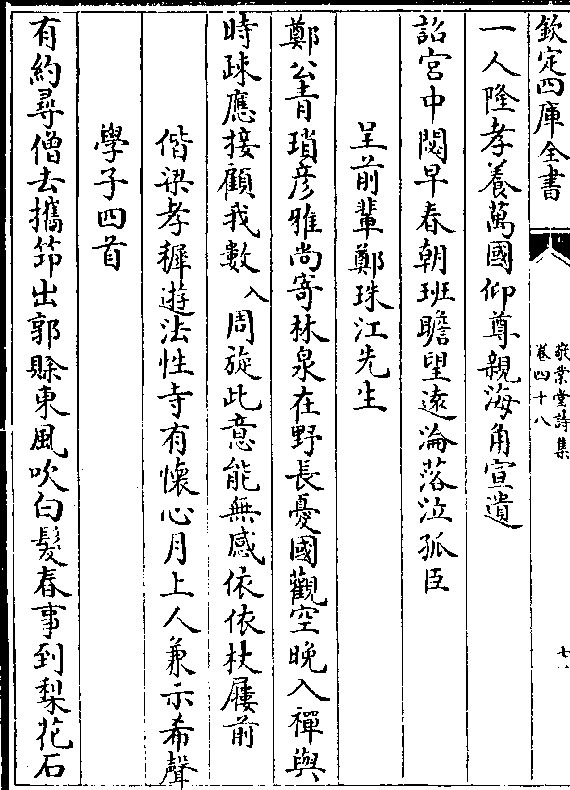 欽定四庫全書
敬業堂詩集
卷四十八
一人隆孝養萬國仰尊親海角宣遺
詔宮中閟早春朝班瞻望逺淪落泣孤臣
呈前輩鄭珠江先生
鄭公青瑣彦雅尚寄林泉在野長憂國觀空晚入禪與
時踈應接顧我數周旋此意能無感依依杖屨前
偕梁孝穉遊法性寺有懐心月上人兼示希聲
學子四首
有約尋僧去攜笻出郭賖東風吹白髪春事到梨花石